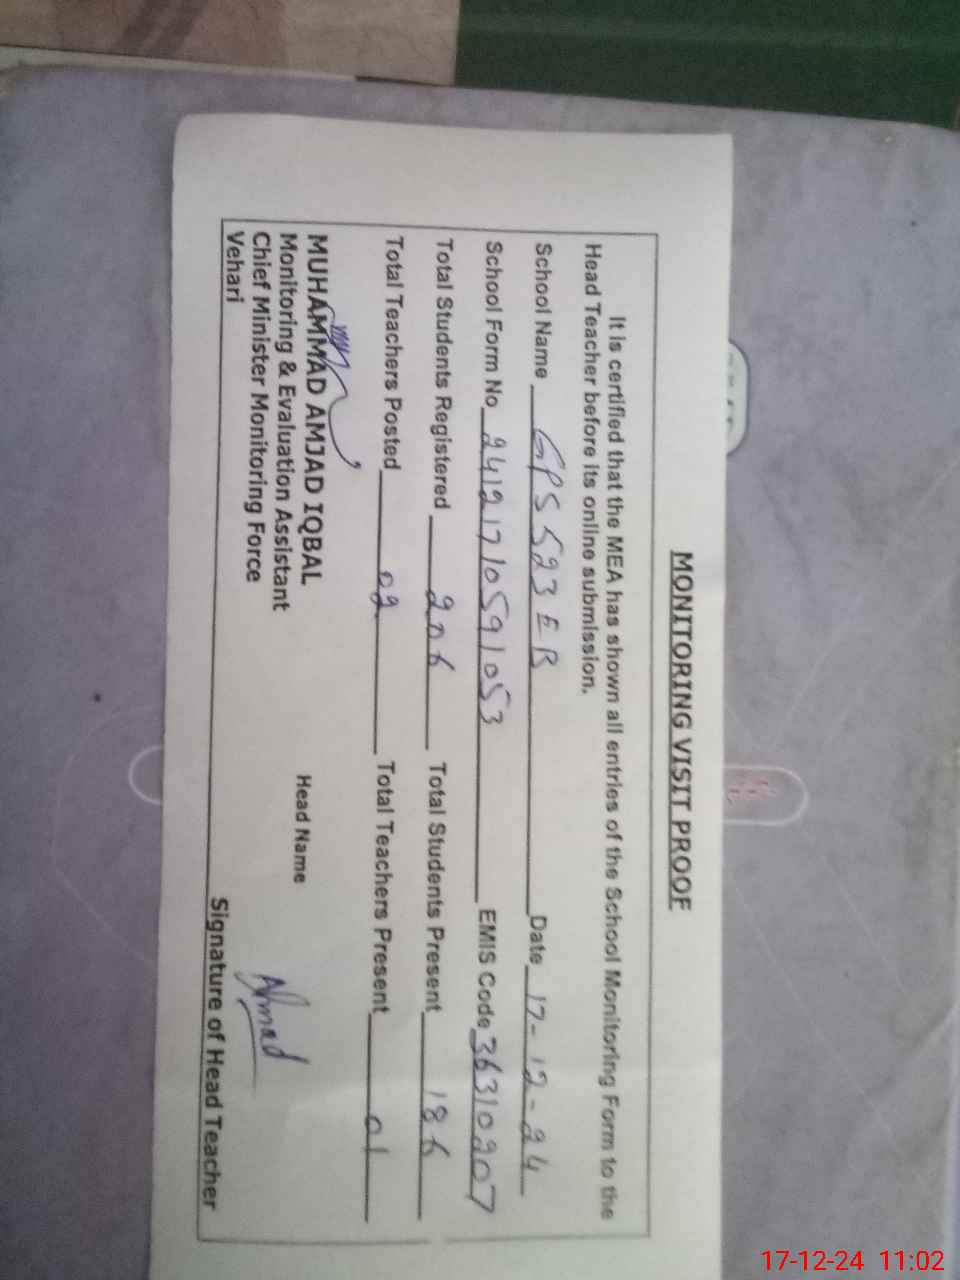 MONITORING VISIT PROOF
It is certified that the MEA has shown all entries of the School Monitoring Form to the
Head Teacher before its online submission.
School Name GPS 523 EB Date 17-12-24
School Form No 24121710591053 EMIS Code 36310207
Total Students Registered 206 Total Students Present 186
Total Teachers Posted 02 Total Teachers Present 01
MUHAMMAD AMJAD IQBAL Head Name
Monitoring & Evaluation Assistant
Chief Minister Monitoring Force Ahmad
Vehari Signature of Head Teacher
17-12-24 11:02